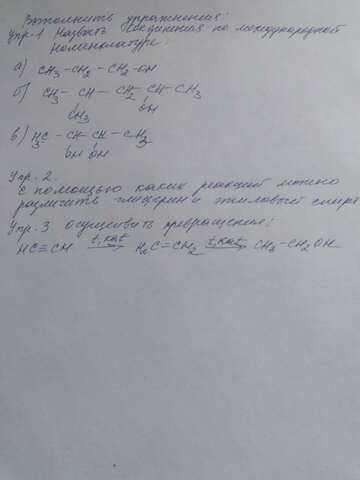 Выполнить упражнения:
Упр.1 Назвать соединения по международной
номенклатуре:
а) CH3-CH2-CH2-OH
б) CH3-CH-CH2-CH-CH3
CH3 OH
в) H3C-CH-CH-CH3
OH OH
Упр.2.
С помощью каких реакций можно
различить глицерин и этиловый спирт
Упр.3. Осуществить превращения:
HC≡CH t,кат→ H2C=CH2 t,кат→ CH3-CH2OH